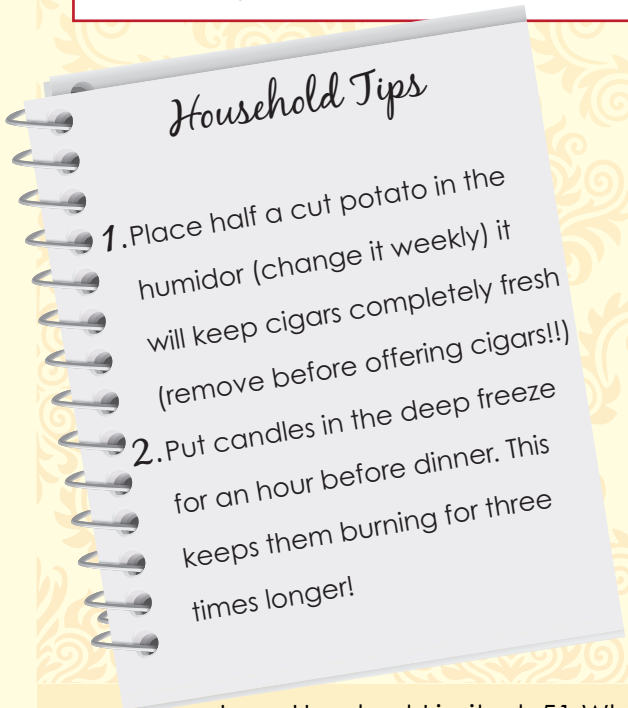 Household Tips
1.Place half a cut potato in the
humidor (change it weekly) it
will keep cigars completely fresh
(remove before offering cigars!!)
2.Put candles in the deep freeze
for an hour before dinner. This
keeps them burning for three
times longer!